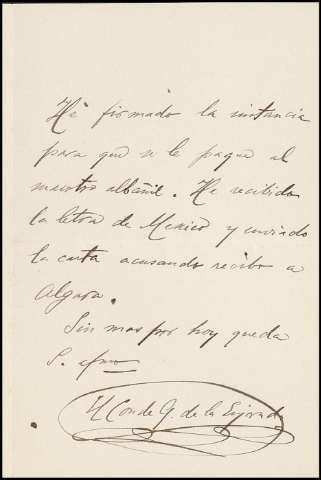 He firmado la instancia
para que se le pague al
maestro albañil. He recibido
la letra de Mexico y enviado
la carta acusando recibo a
Algara.
Sin mas por hoy queda
S. afmo
El Conde G. de la